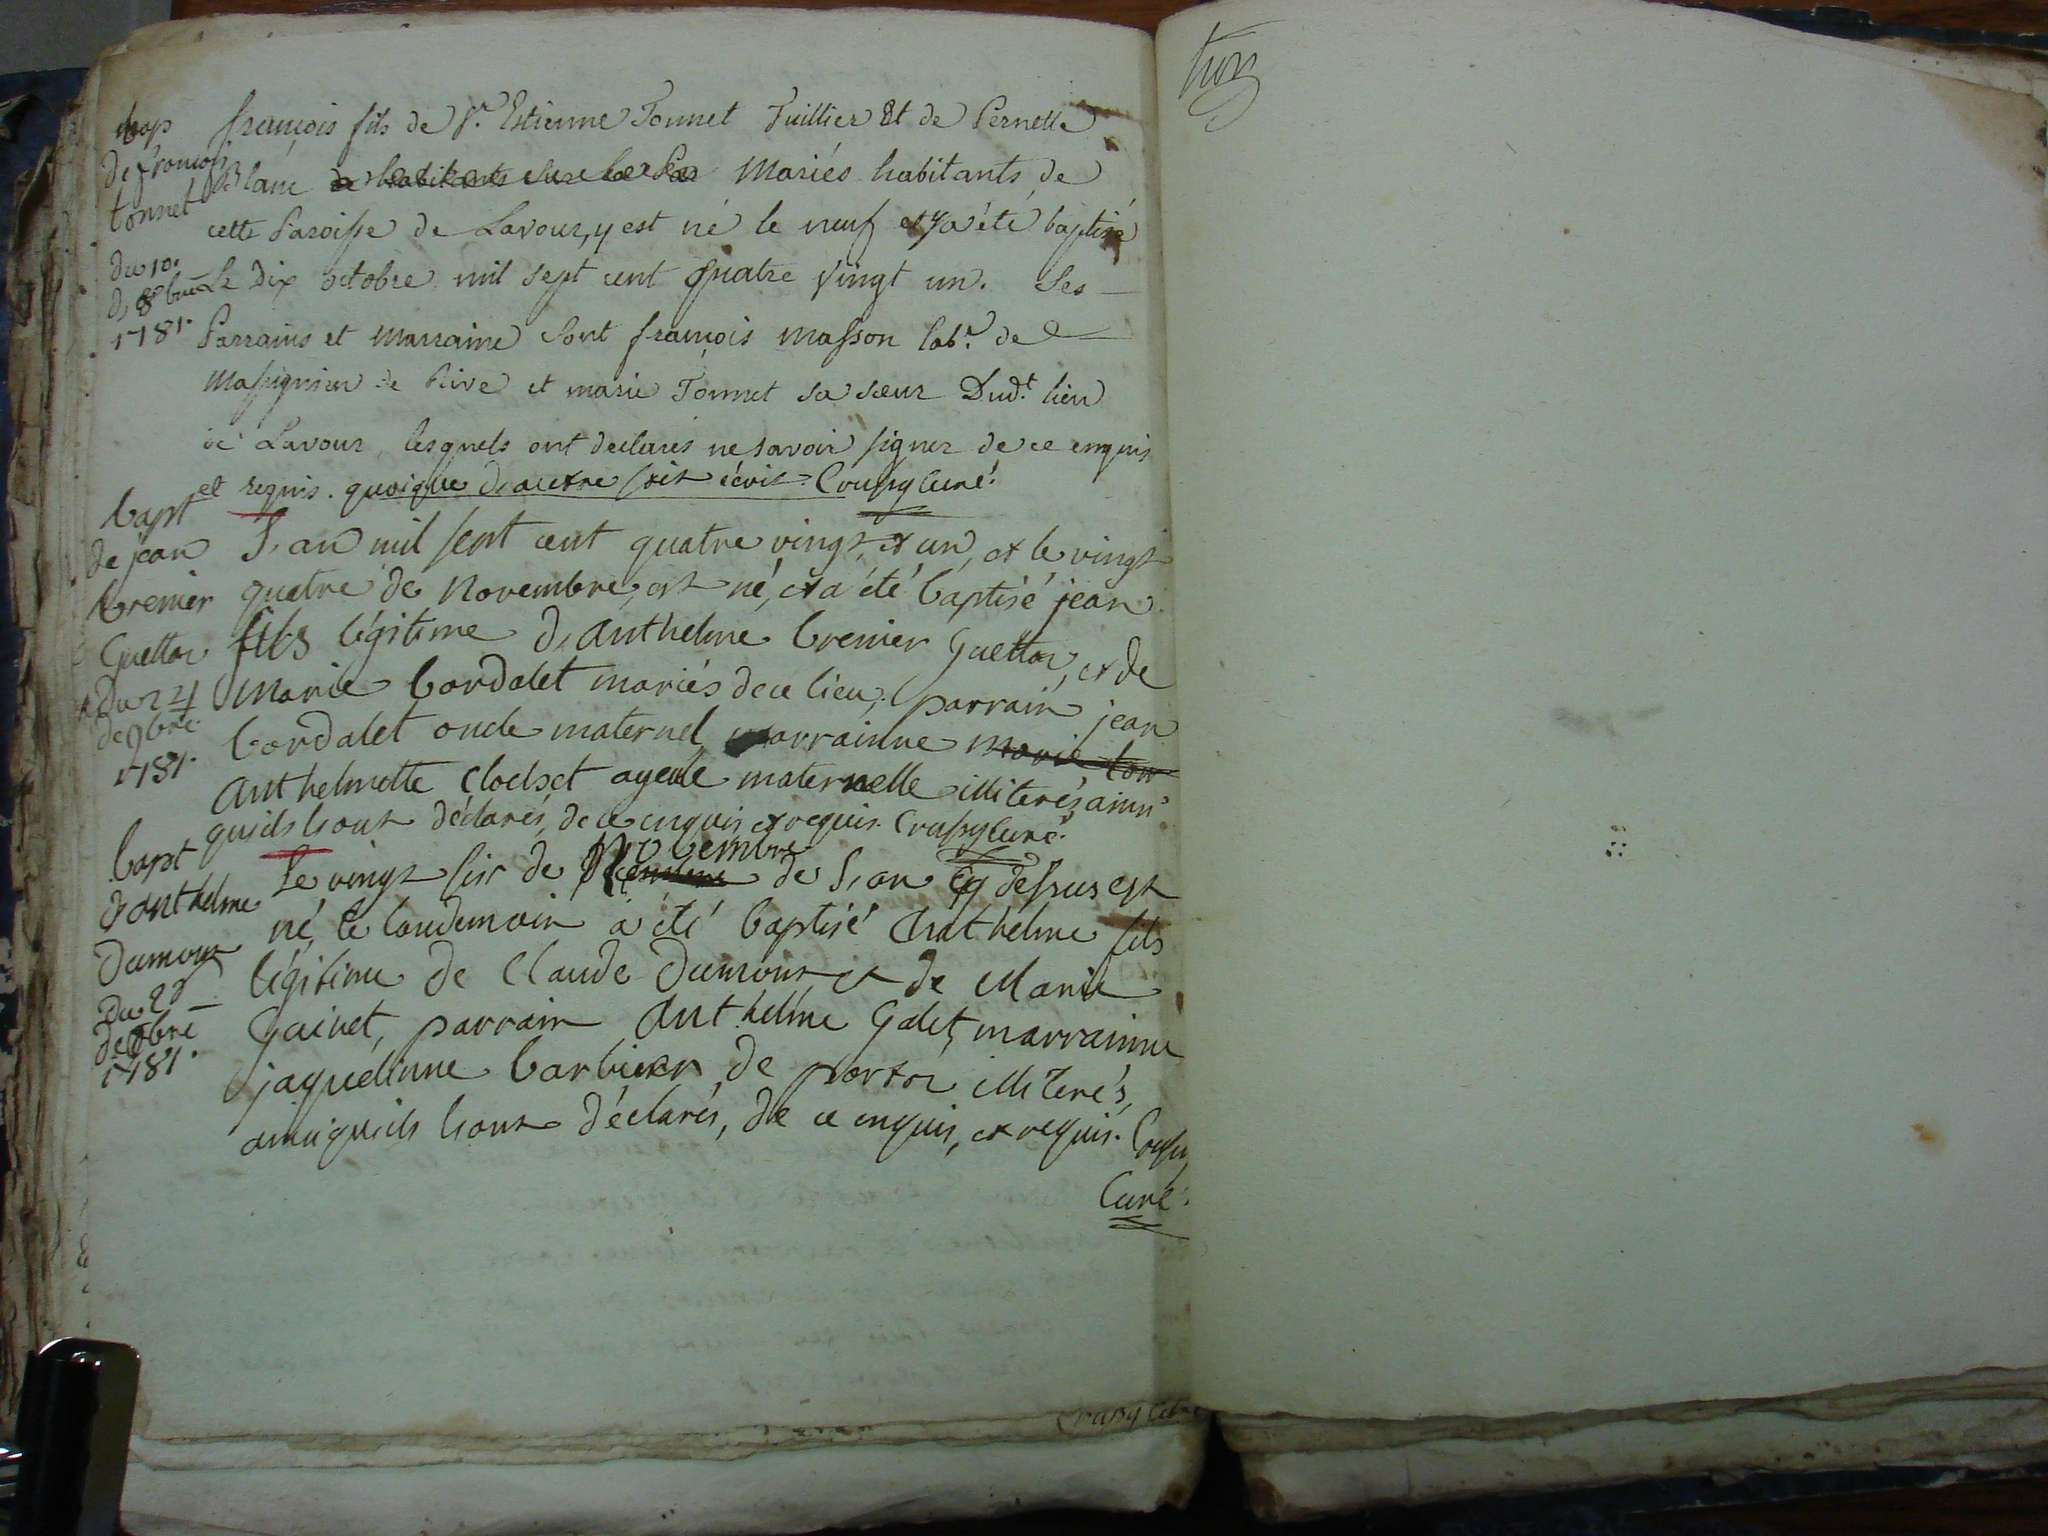 bap
de françois
tonnet
du 10.
d, 8bre
1781.
françois fils de Sr. Estienne Tonnet Tuillier Et de Pernette
Blanc Mariés habitants de
cette Paroisse de Lavour, y est né le neuf et y a été baptisé
Le Dix octobre mil sept cent quatre vingt un. Ses
Parrains et marraine sont françois masson labr. de
Massignieu de Rive et marie Tonnet sa sœur Dudt. lieu
de Lavour, lesquels ont declarés ne savoir signer de ce enquis
et requis. quoique d, autre soit écrit. Crussy Curé.
bapt
de jean
bremier
Guettaz
du 24
de 9bre.
1781.
L, an mil sept cent quatre vingt, et un, et le vingt
quatre de Novembre, est né, et a été baptisé jean
fils légitime d, Anthelme bremier Guettaz, et de
Marie bordalet mariés de ce lieu; parrain jean
bordalet oncle maternel, marrainne marie
Anthelmette ayeule maternelle illiterés, ainsi
quils l,ont déclarés, de ce enquis et requis. Crussy Curé.
bapt
d, anthelme
Dumont
du 27
de 9bre
1781.
Le vingt six de Novembre de L, an cy dessus est
né, le landemain a été baptisé Anthelme fils
légitime de Claude Dumont et de Marie
Gainet, parrain Anthelme Galet, marrainne
jaquelinne barbier de portoz illiterés,
ainsi quils l,ont déclarés, de ce enquis, et requis. Crussy
Curé.
Crussy Curé